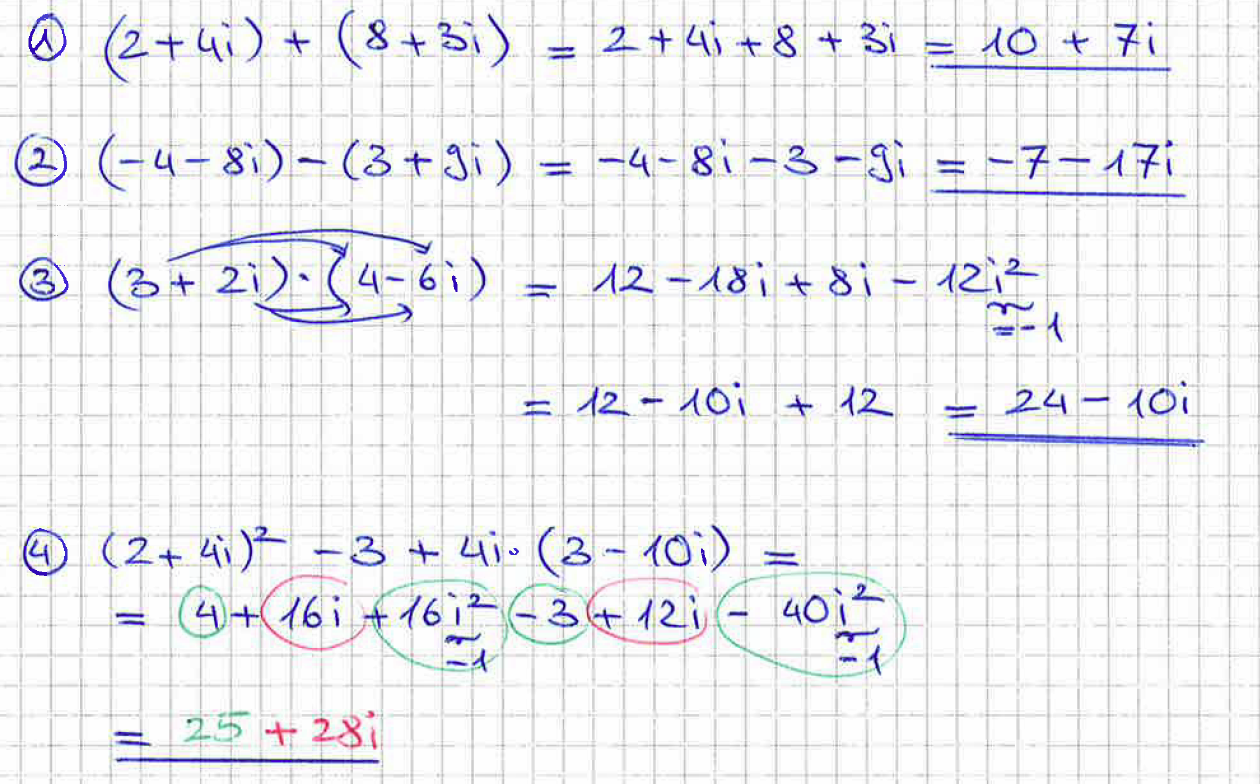 ① (2+4i) + (8+3i) = 2+4i+8+3i = 10 + 7i
② (-4-8i)-(3+9i) = -4-8i-3-9i = -7-17i
③ (3+2i)·(4-6i) = 12-18i+8i-12i²
=-1
= 12-10i + 12 = 24-10i
④ (2+4i)² -3 + 4i·(3-10i) =
= 4+16i+16i²-3+12i-40i²
-1 -1
= 25+28i